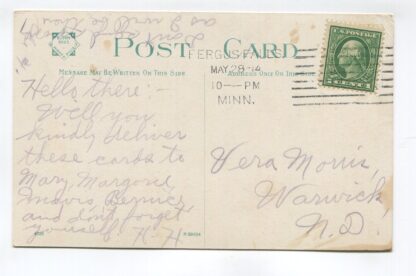 POST CARD
MESSAGE MAY BE WRITTEN ON THIS SIDE
ADDRESS ONLY ON THIS SIDE
FERGUS FALLS
MAY 28 14
10—PM
MINN.
U.S. POSTAGE
Hello there:-
Will you
kindly deliver
these cards to
Mary, Margone,
Mavis
and don't forget
yourself. H. H.
Vera Morris,
Warwick,
N.D.